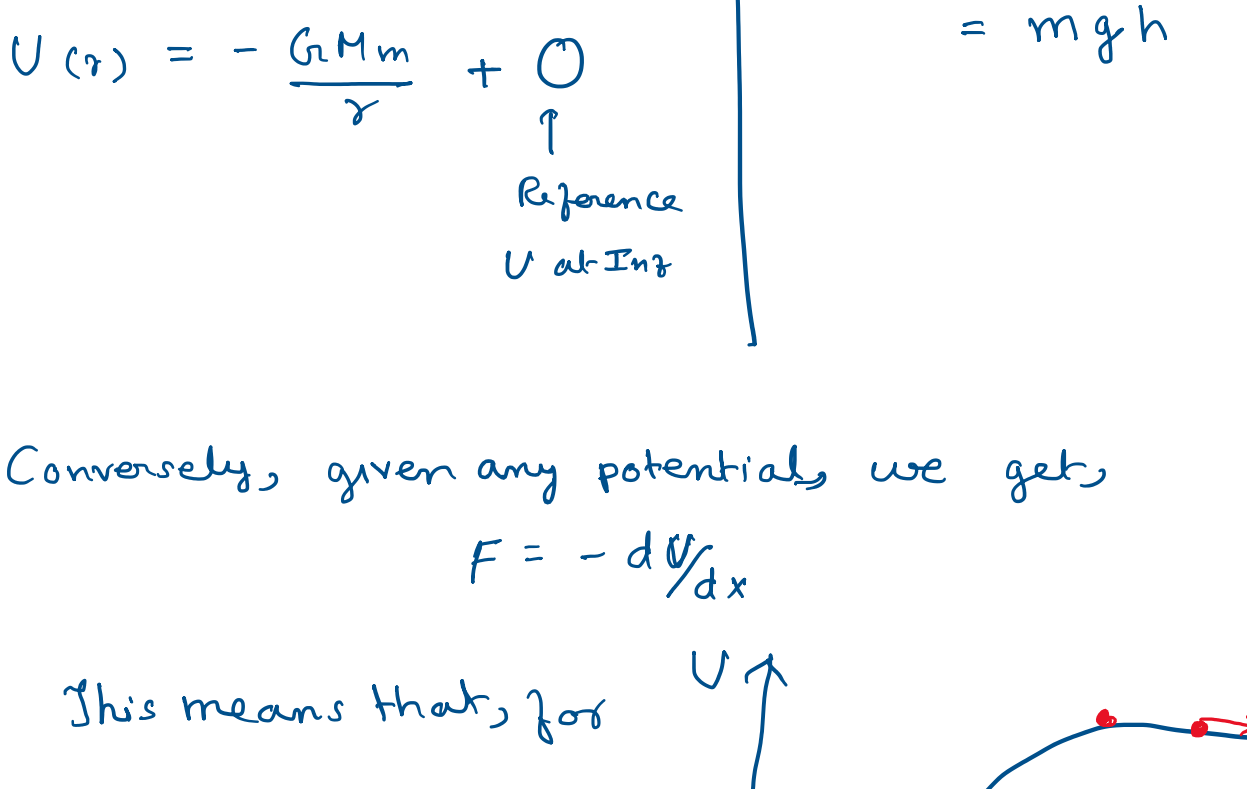 U(r) = - GMm/r + 0
↑
Reference
U at Inf
= mgh
Conversely, given any potential, we get,
F = - dU/dx
This means that, for
U